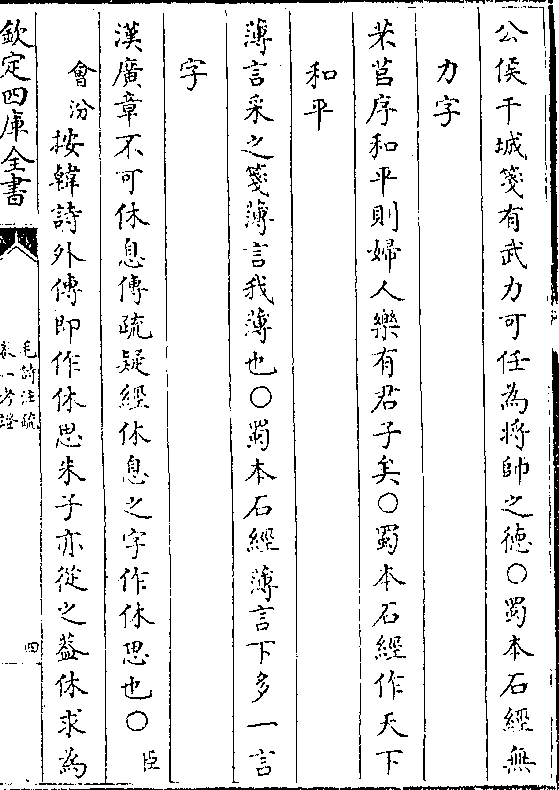 公侯干城箋有武力可任為將帥之德〇蜀本石經無
力字
芣苢序和平則婦人樂有君子矣〇蜀本石經作天下
和平
薄言采之箋薄言我薄也〇蜀本石經薄言下多一言
字
漢廣章不可休息傳疏疑經休息之字作休思也〇臣
會汾按韓詩外傳即作休思朱子亦從之葢休求為
欽定四庫全書
毛詩注疏
卷一考證
四